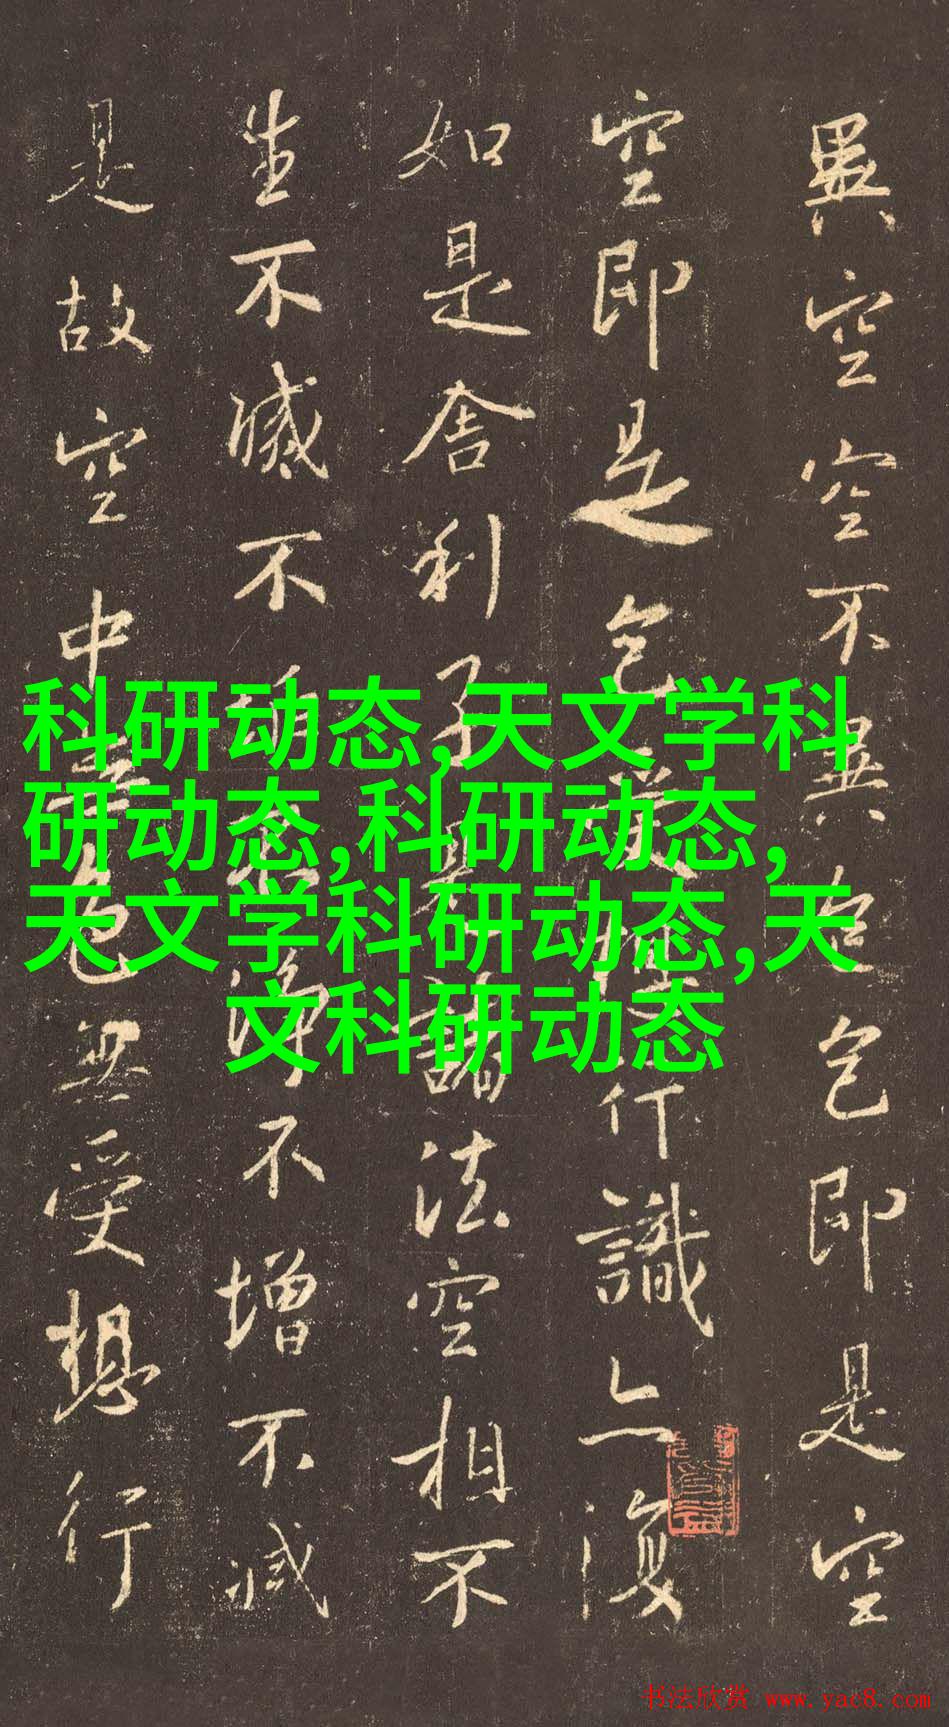 異空空不異色色即是空
空即是色受想行識亦復
如是舍利子是諸法空相不
生不滅不垢不淨不增不減
是故空中無色無受想行
科研动态,天文学科
研动态,科研动态,
天文学科研动态,天
文科研动态
书法欣赏 www.yac8.com